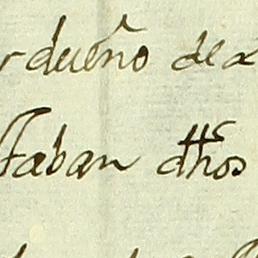 dueño de
taban dhos